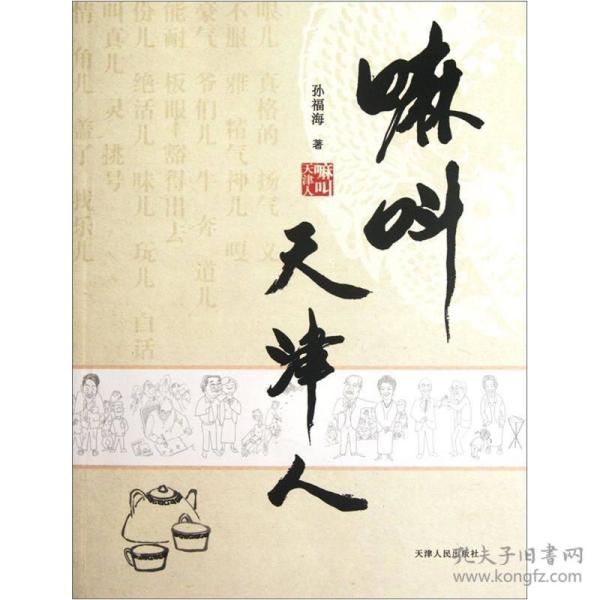 嘛叫
天津人
孙福海 著
嘛叫
天津人
眼儿 真格的 扬气 义
不服 雅 精气神儿 嘎
豪气 爷们儿 牛 奔 道儿
能耐 板眼 豁得出去
份儿 绝活儿 味儿 玩儿 白话
叫真儿 灵 挑号
情 角儿 盖了 找乐儿
天津人民出版社
孔夫子旧书网
www.kongfz.com